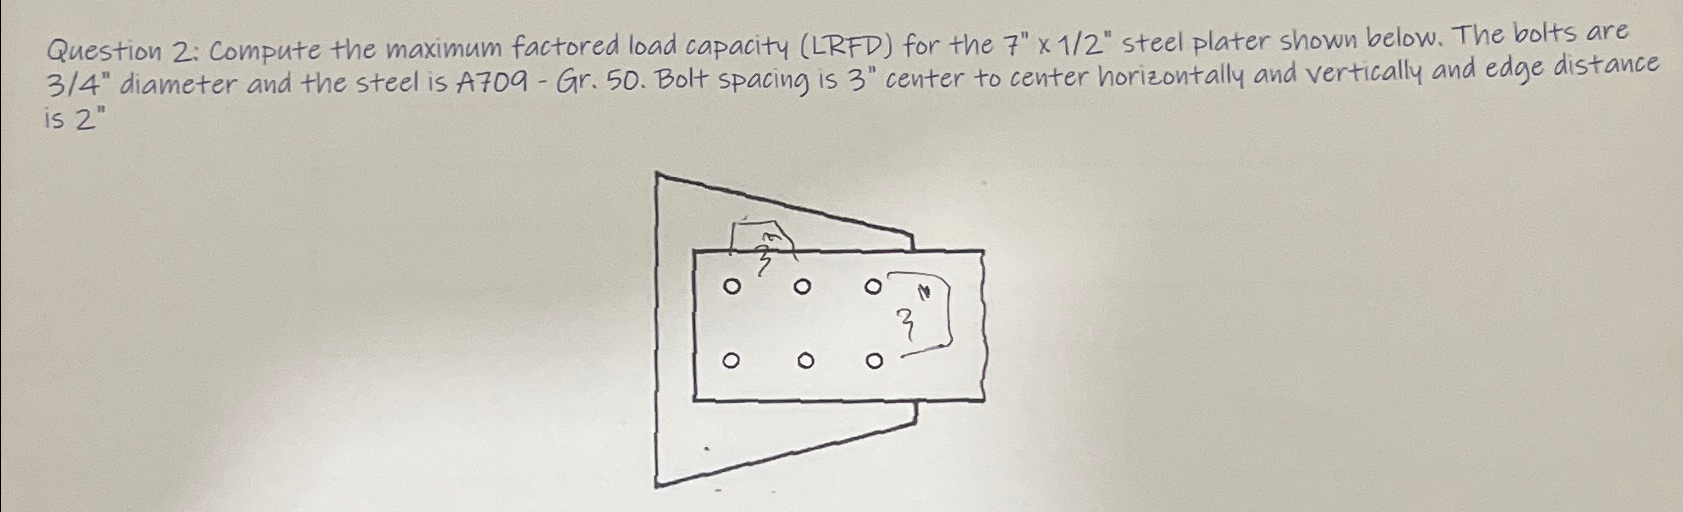 Question 2: Compute the maximum factored load capacity (LRFD) for the 7" x 1/2" steel plater shown below. The bolts are
3/4" diameter and the steel is A709 - Gr. 50. Bolt spacing is 3" center to center horizontally and vertically and edge distance
is 2"
3"
3"